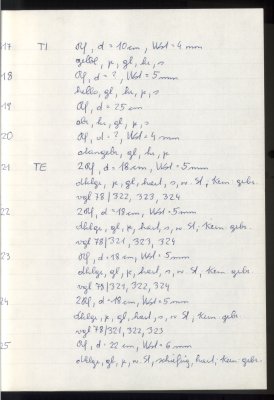 17 TI Rf, d = 10 cm, Wst = 4 mm
gelbl, p, gl, hr, s
18 Rf, d = ?, Wst = 5 mm
hello, gl, hr, p, s
19 Rf, d = 25 cm
obr, hr, gl, p, s
20 Rf, d = ?, Wst = 4 mm
gl, hr, p
21 TE 2 Rf, d = 18 cm, Wst = 5 mm
dklge, p, gl, hart, s, w. St, Kern gebr.
vgl 78/322, 323, 324
22 2 Rf, d = 18 cm, Wst = 5 mm
dklge, p, gl, hart, s, w. St, Kern gebr.
vgl 78/321, 323, 324
23 Rf, d = 18 cm, Wst = 5 mm
dklge, p, gl, hart, s, w. St, Kern gebr.
vgl 78/321, 322, 324
24 2 Rf, d = 18 cm, Wst = 5 mm
dklge, p, gl, hart, s, w. St, Kern gebr.
vgl 78/321, 322, 323
25 Rf, d = 22 cm, Wst = 6 mm
dklge, gl, p, w. St, schiefrig, hart, Kern gebr.